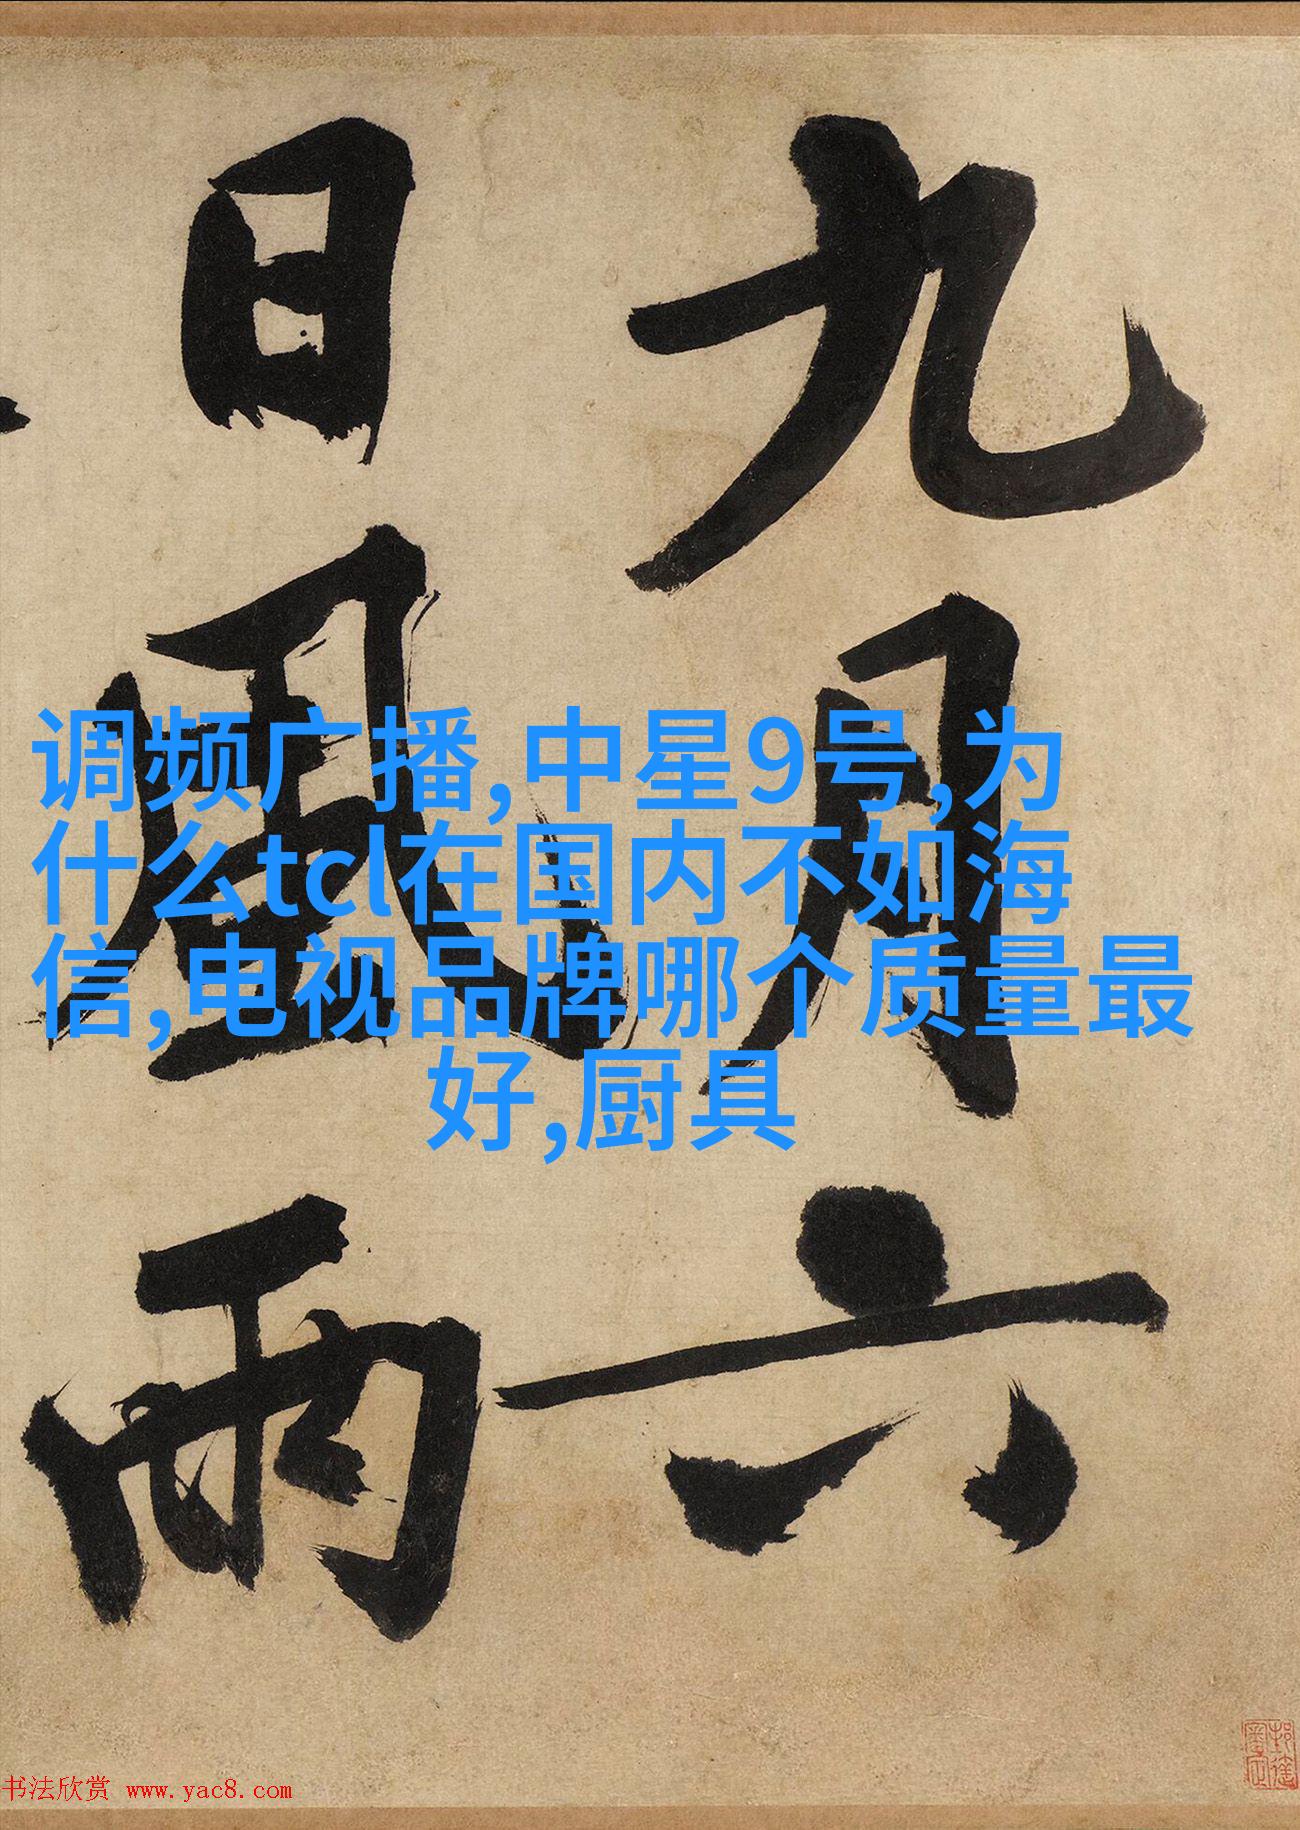 九月六
日風雨
调频广播,中星9号,为
什么tcl在国内不如海
信,电视品牌哪个质量最
好,厨具
书法欣赏 www.yac8.com